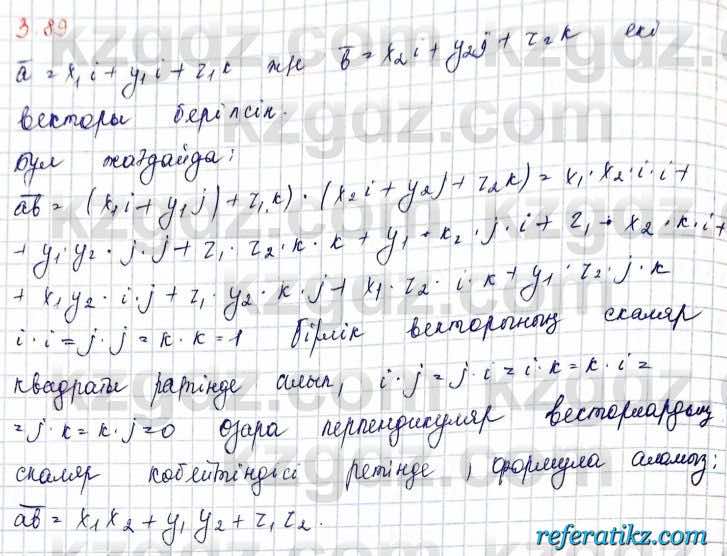 3.89
a̅ = x₁i + y₁i + z₁k және b̅ = x₂i + y₂j + z₂k екі
векторы берілсін.
Бұл жағдайда:
a̅b̅ = (x₁i + y₁j) + z₁k) · (x₂i + y₂j + z₂k) = x₁ · x₂ · i · i +
+ y₁ · y₂ · j · j + z₁ · z₂ · k · k + y₁ · x₂ · j · i + z₁ · x₂ · k · i +
+ x₁y₂ · i · j + z₁ · y₂ · k · j + x₁ · z₂ · i · k + y₁ · z₂ · j · k
i · i = j · j = k · k = 1 бірлік векторының скаляр
квадраты ретінде алып, i · j = j · i = i · k = k · i =
= j · k = k · j = 0 өзара перпендикуляр векторлардың
скаляр көбейтіндісі ретінде, формула аламыз:
a̅b̅ = x₁x₂ + y₁y₂ + z₁z₂.
kzgdz.com
referatikz.com